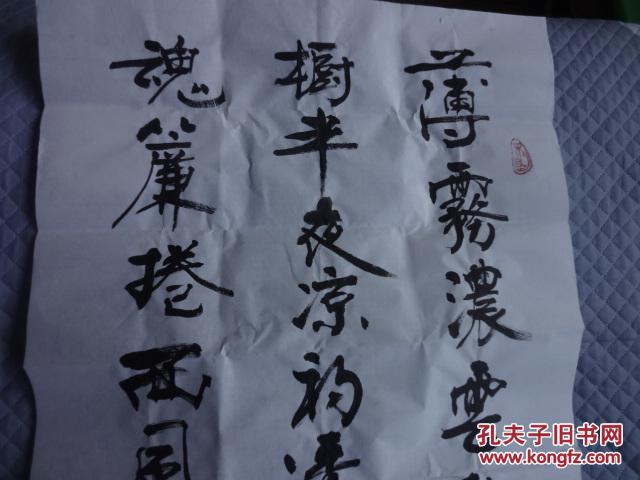 薄霧濃雲
橱半夜凉初
魂簾捲西風
孔夫子旧书网
www.kongfz.com